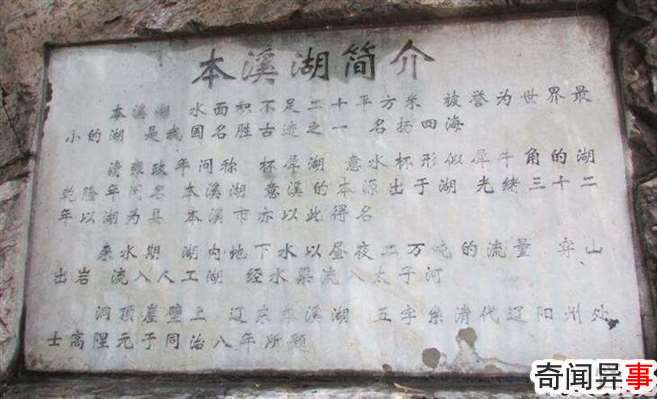 本溪湖简介
本溪湖 水面积不足二十平方米 被誉为世界最
小的湖 是我国名胜古迹之一 名扬四海
清雍政年间称 杯犀湖 意水杯形似犀牛角的湖
乾隆年间名 本溪湖 意溪的本源出于湖 光绪三十二
年以湖为县 本溪市亦以此得名
来水期 湖内地下水以昼夜二万吨的流量 穿山
出岩 流入人工湖 经水渠流入太子河
洞顶崖壁上 辽东本溪湖 五字系清代辽阳州处
士高陞元于同治八年所题
奇闻异事